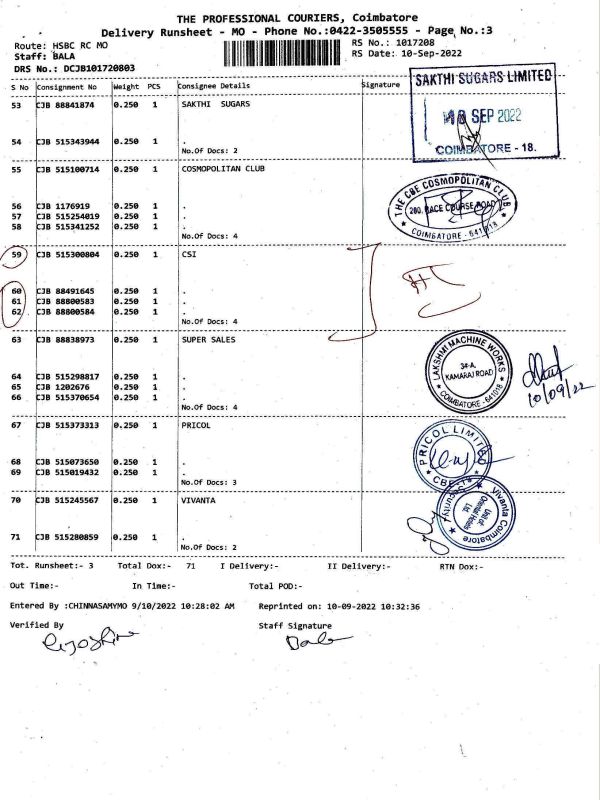 THE PROFESSIONAL COURIERS, Coimbatore
Delivery Runsheet - MO - Phone No.:0422-3505555 - Page No.:3
Route: HSBC RC MO
RS No.: 1017208
Staff: BALA
RS Date: 10-Sep-2022
DRS No.: DCJB101720803
S No Consignment No Weight PCS Consignee Details Signature
53 CJB 88841874 0.250 1 SAKTHI SUGARS
54 CJB 515343944 0.250 1 .
No.Of Docs: 2
SAKTHI SUGARS LIMITED
SEP 2022
COIMBATORE - 18.
55 CJB 515100714 0.250 1 COSMOPOLITAN CLUB
56 CJB 1176919 0.250 1 .
57 CJB 515254019 0.250 1 .
58 CJB 515341252 0.250 1 .
No.Of Docs: 4
THE CBE COSMOPOLITAN CLUB
RACE COURSE ROAD
COIMBATORE - 641018
59 CJB 515300804 0.250 1 CSI
60 CJB 88491645 0.250 1 .
61 CJB 88800583 0.250 1 .
62 CJB 88800584 0.250 1 .
No.Of Docs: 4
63 CJB 88838973 0.250 1 SUPER SALES
64 CJB 515298817 0.250 1 .
65 CJB 1202676 0.250 1 .
66 CJB 515370654 0.250 1 .
No.Of Docs: 4
LAKSHMI MACHINE WORKS
34-A,
KAMARAJ ROAD
COIMBATORE - 641018
10/09/22
67 CJB 515373313 0.250 1 PRICOL
68 CJB 515073650 0.250 1 .
69 CJB 515019432 0.250 1 .
No.Of Docs: 3
PRICOL LIMITED
70 CJB 515245567 0.250 1 VIVANTA
71 CJB 515280859 0.250 1 .
No.Of Docs: 2
Vivanta Coimbatore
Unit of:
Oriental Hotels
Ltd.
Security
Tot. Runsheet:- 3 Total Dox:- 71 I Delivery:- II Delivery:- RTN Dox:-
Out Time:- In Time:- Total POD:-
Entered By :CHINNASAMYMO 9/10/2022 10:28:02 AM Reprinted on: 10-09-2022 10:32:36
Verified By
Staff Signature
Bala